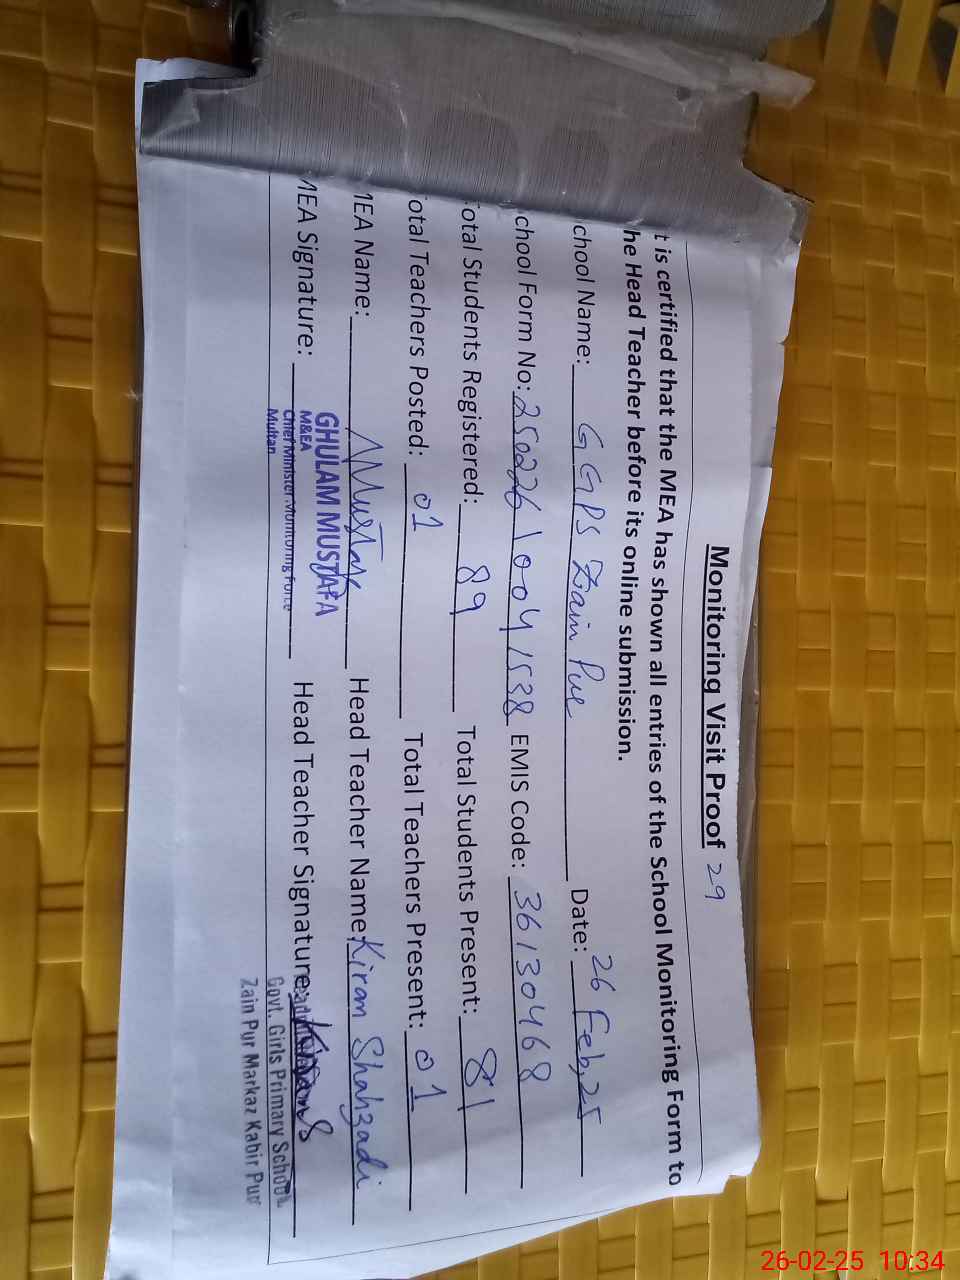 Monitoring Visit Proof 29
t is certified that the MEA has shown all entries of the School Monitoring Form to
he Head Teacher before its online submission.
chool Name: GGPS Zain Pur Date: 26 Feb, 25
chool Form No: 250226 1004 1538 EMIS Code: 36130468
otal Students Registered: 89 Total Students Present: 81
otal Teachers Posted: 01 Total Teachers Present: 01
MEA Name: Mustafa Head Teacher Name: Kiran Shahzadi
MEA Signature: GHULAM MUSTAFA Head Teacher Signature: Kiran S
M&EA
Chief Minister Monitoring Force
Multan
Govt. Girls Primary School
Zain Pur Markaz Kabir Pur
26-02-25 10:34